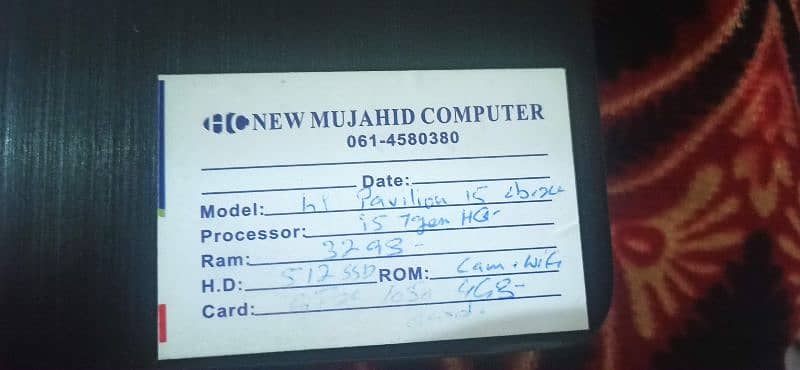 NEW MUJAHID COMPUTER
061-4580380
Date:
Model: hp Pavilion 15
Processor: i5 7gen HQ-
Ram: 32GB-
H.D: 512 SSD ROM: Cam+wifi
Card: 1050 4GB-